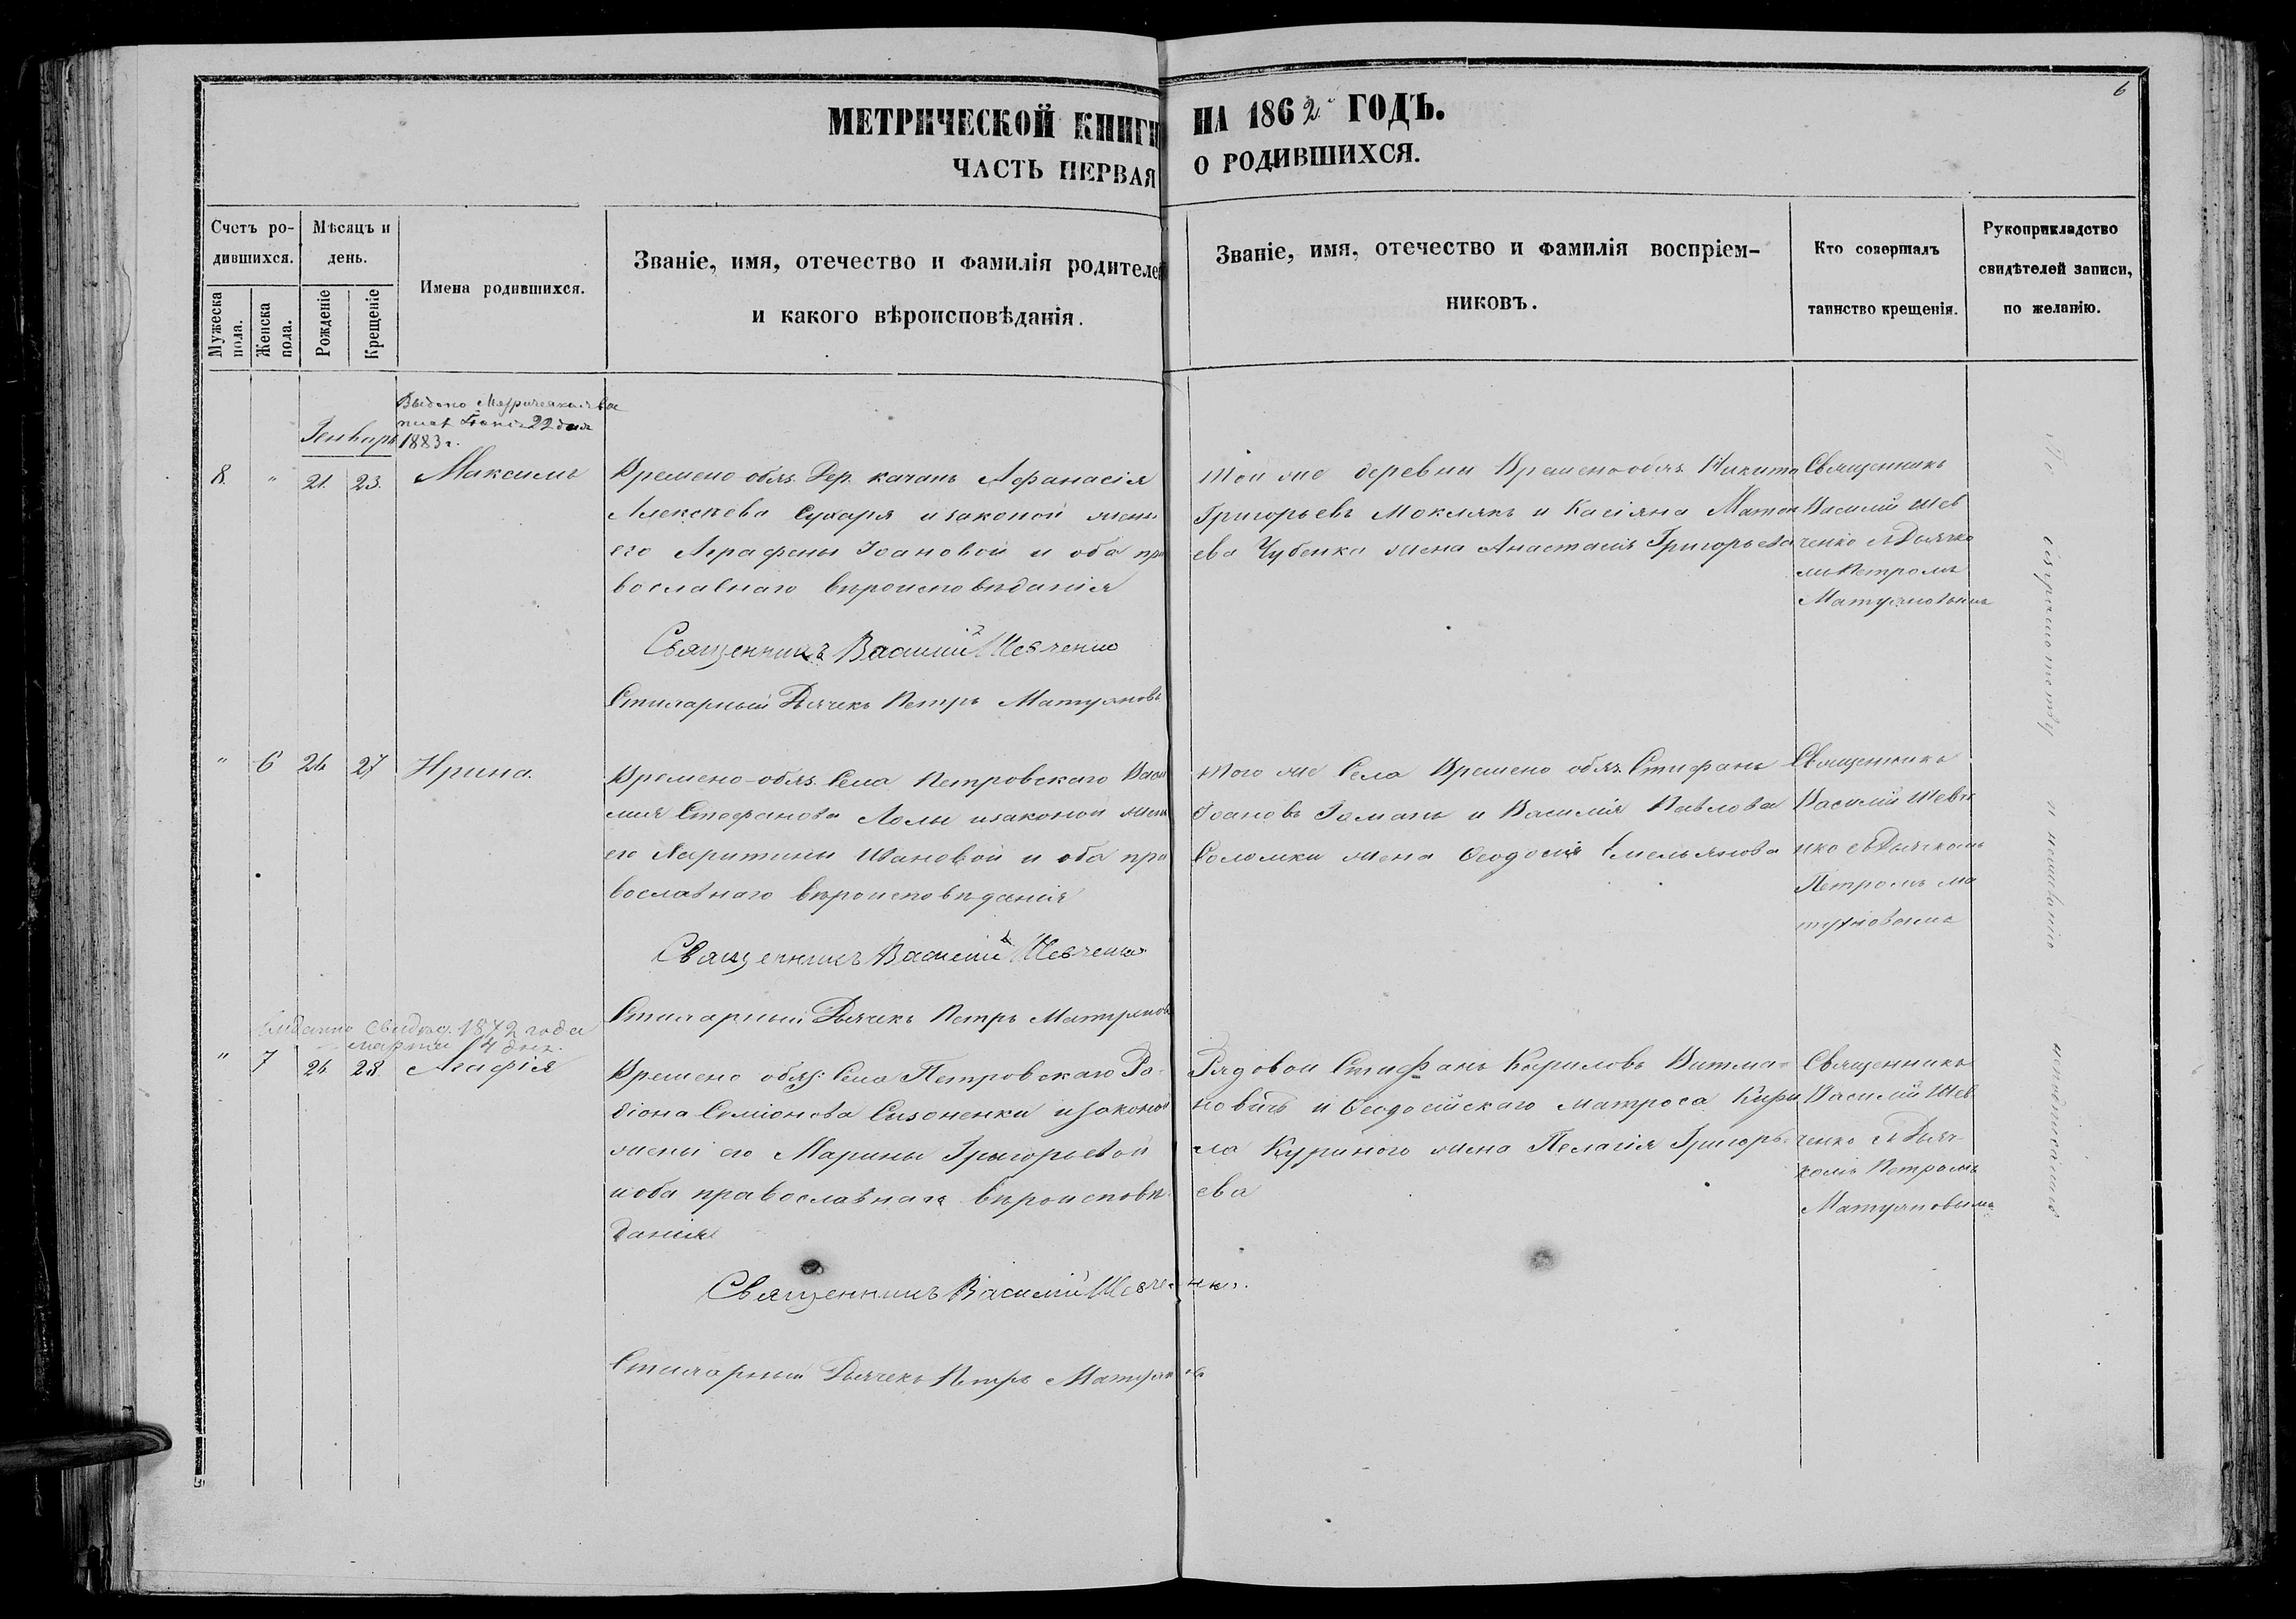 6
МЕТРИЧЕСКОЙ КНИГИ НА 1862 ГОДЪ.
ЧАСТЬ ПЕРВАЯ О РОДИВШИХСЯ.
Счетъ ро-
дившихся.
Мужеска пола.
Женска пола.
Мѣсяцъ и
день.
Рожденіе
Крещеніе
Имена родившихся.
Званіе, имя, отечество и фамилія родителей
и какого вѣроисповѣданія.
Званіе, имя, отечество и фамилія воспріем-
никовъ.
Кто совершалъ
таинство крещенія.
Рукоприкладство
свидѣтелей записи,
по желанію.
22 дня
Генварь 1883 г.
8. " 21. 23. Максимъ
Времено обяз. Дер. качанъ Афанасія
Алексѣева Сухаря изаконой жены
его Аграфены Іоановой и оба пра
вославнаго вѣроисповѣданія
Священникъ Василий Шевченко
Стихарный Дьячекъ Петръ Матуяновъ
Той же деревни Временообяз. Никита
Григорьевъ Моклякъ и Касіяна Матве
ева Чубенка жена Анастасія Григорьева
Священникъ
Василій Шев
ченко съ Дьячко
мъ Петромъ
Матуяновымъ
" 6 26 27 Ирина.
Времено-обяз. Села Петровскаго Васи
лия Стефанова Лолы изаконой жены
его Харитины Ивановой и оба пра
вославнаго вѣроисповѣданія
Священникъ Василий Шевченко
Стихарный Дьячекъ Петръ Матуяновъ
Того же Села Времено обяз. Стифанъ
Іоановъ Гомань и Василія Павлова
Соломки жена Феодосія Емельянова
Священникъ
Василій Шевче
нко съ Дьячкомъ
Петромъ Ма
туяновымъ
Выданно свидѣт. 1872 года
марта 14 дня.
" 7 26 28. Агафія
Времено обяз: Села Петровскаго Ро-
діона Симіонова Сизоненки изаконой
жены его Марины Григорьевой
иоба православнаго вѣроисповѣ
данія
Священникъ Василій Шевченко.
Стихарный Дьячекъ Петръ Матуяновъ
Рядовой Стифанъ Кириловъ Витма-
новичъ и Феодосійскаго матроса Кири
ла Куриного жена Пелагія Григорь-
ева
Священникъ
Василій Шев
ченко съ Дьяч-
комъ Петромъ
Матуяновымъ
По безграмотству и неимѣнію